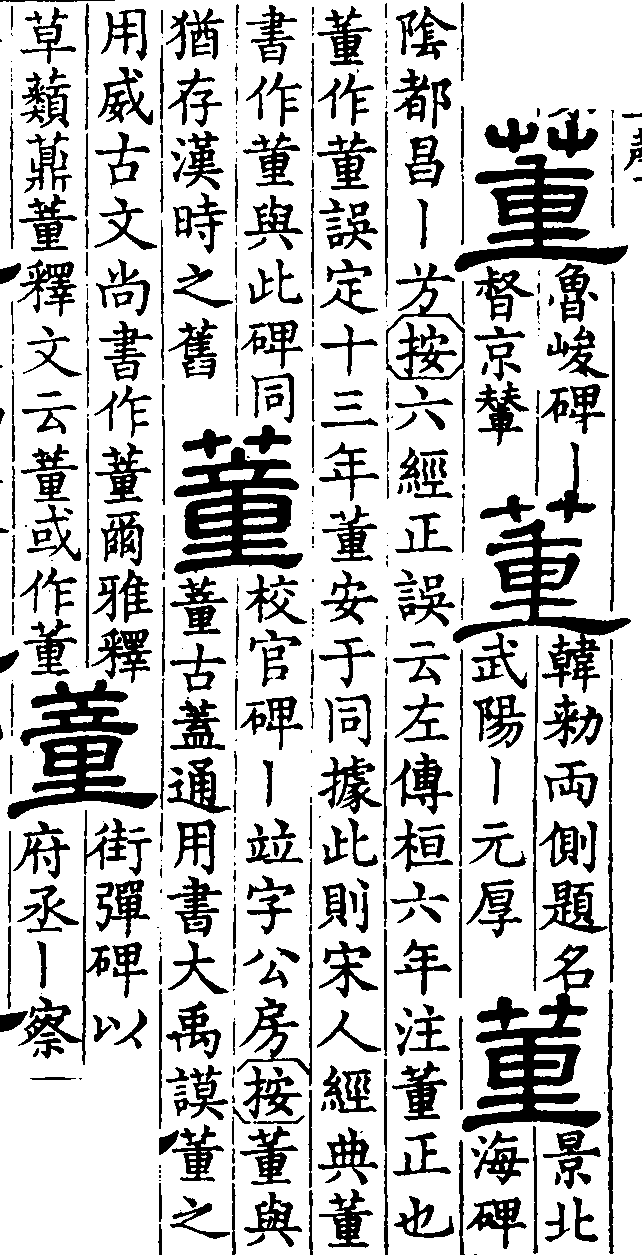 董
魯峻碑丨
督京輦
董
韓勑兩側題名
武陽丨元厚
董
景北
海碑
陰都昌丨方按六經正誤云左傳桓六年注董正也
董作董誤定十三年董安于同據此則宋人經典董
書作董與此碑同
猶存漢時之舊
蕫
校官碑丨竝字公房按董與
蕫古蓋通用書大禹謨董之
用威古文尚書作蕫爾雅釋
草蘱薡蕫釋文云蕫或作董
蕫
街彈碑以
府丞丨察